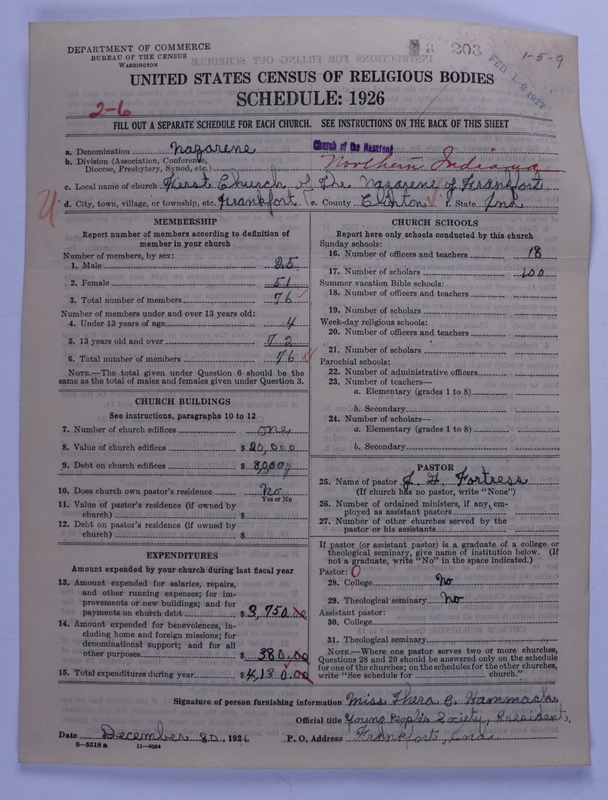 DEPARTMENT OF COMMERCE
BUREAU OF THE CENSUS
WASHINGTON
203
FEB 12 1927
1-5-9
UNITED STATES CENSUS OF RELIGIOUS BODIES
SCHEDULE: 1926
2-6
FILL OUT A SEPARATE SCHEDULE FOR EACH CHURCH. SEE INSTRUCTIONS ON THE BACK OF THIS SHEET
a. Denomination Nazarene Church of the Nazarene
b. Division (Association, Conference, Diocese, Presbytery, Synod, etc.) Northern Indiana
c. Local name of church First Church of The Nazarene of Frankfort
d. City, town, village, or township, etc. Frankfort e. County Clinton f. State Ind
MEMBERSHIP
Report number of members according to definition of member in your church
Number of members, by sex:
1. Male 25
2. Female 51
3. Total number of members 76
Number of members under and over 13 years old:
4. Under 13 years of age 4
5. 13 years old and over 72
6. Total number of members 76
NOTE.—The total given under Question 6 should be the same as the total of males and females given under Question 3.
CHURCH BUILDINGS
See instructions, paragraphs 10 to 12
7. Number of church edifices one
8. Value of church edifices $ 20,000
9. Debt on church edifices $ 8,000
10. Does church own pastor's residence No
Yes or No
11. Value of pastor's residence (if owned by church) $
12. Debt on pastor's residence (if owned by church) $
EXPENDITURES
Amount expended by your church during last fiscal year
13. Amount expended for salaries, repairs, and other running expenses; for improvements or new buildings; and for payments on church debt $ 3,750.00
14. Amount expended for benevolences, including home and foreign missions; for denominational support; and for all other purposes $ 380.00
15. Total expenditures during year $ 4,130.00
CHURCH SCHOOLS
Report here only schools conducted by this church
Sunday schools:
16. Number of officers and teachers 18
17. Number of scholars 100
Summer vacation Bible schools:
18. Number of officers and teachers
19. Number of scholars
Week-day religious schools:
20. Number of officers and teachers
21. Number of scholars
Parochial schools:
22. Number of administrative officers
23. Number of teachers—
a. Elementary (grades 1 to 8)
b. Secondary
24. Number of scholars—
a. Elementary (grades 1 to 8)
b. Secondary
PASTOR
25. Name of pastor J. F. Fortress
(If church has no pastor, write "None")
26. Number of ordained ministers, if any, employed as assistant pastors
27. Number of other churches served by the pastor or his assistants
If pastor (or assistant pastor) is a graduate of a college or theological seminary, give name of institution below. (If not a graduate, write "No" in the space indicated.)
Pastor: 0
28. College No
29. Theological seminary No
Assistant pastor:
30. College
31. Theological seminary
NOTE.—Where one pastor serves two or more churches, Questions 28 and 29 should be answered only on the schedule for one of the churches; on the schedules for the other churches, write "See schedule for church."
Signature of person furnishing information Miss Thera C. Hammack
Official title Young People's Society, President,
Date December 20, 1926 P. O. Address Frankfort, Ind.
8—5518a 11—9034